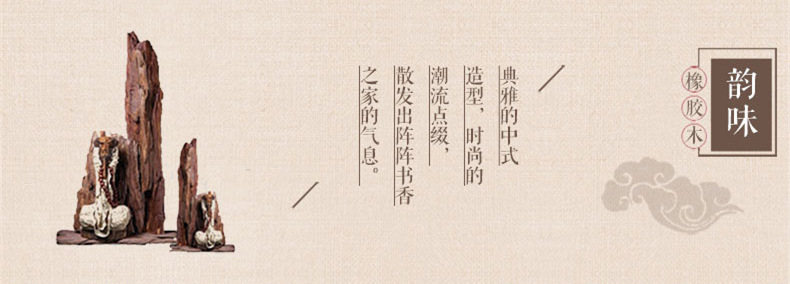 韵味
橡胶木
典雅的中式
造型，时尚的
潮流点缀，
散发出阵阵书香
之家的气息。